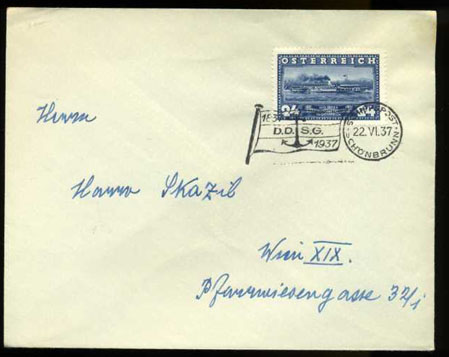 ÖSTERREICH
24 24
1837
D.D.S.G.
1937
SCHIFFSPOST
22.VI.37
SCHÖNBRUNN
Herrn
Hanno Skazib
Wien XIX.
Pfarrwiesengasse 32/i